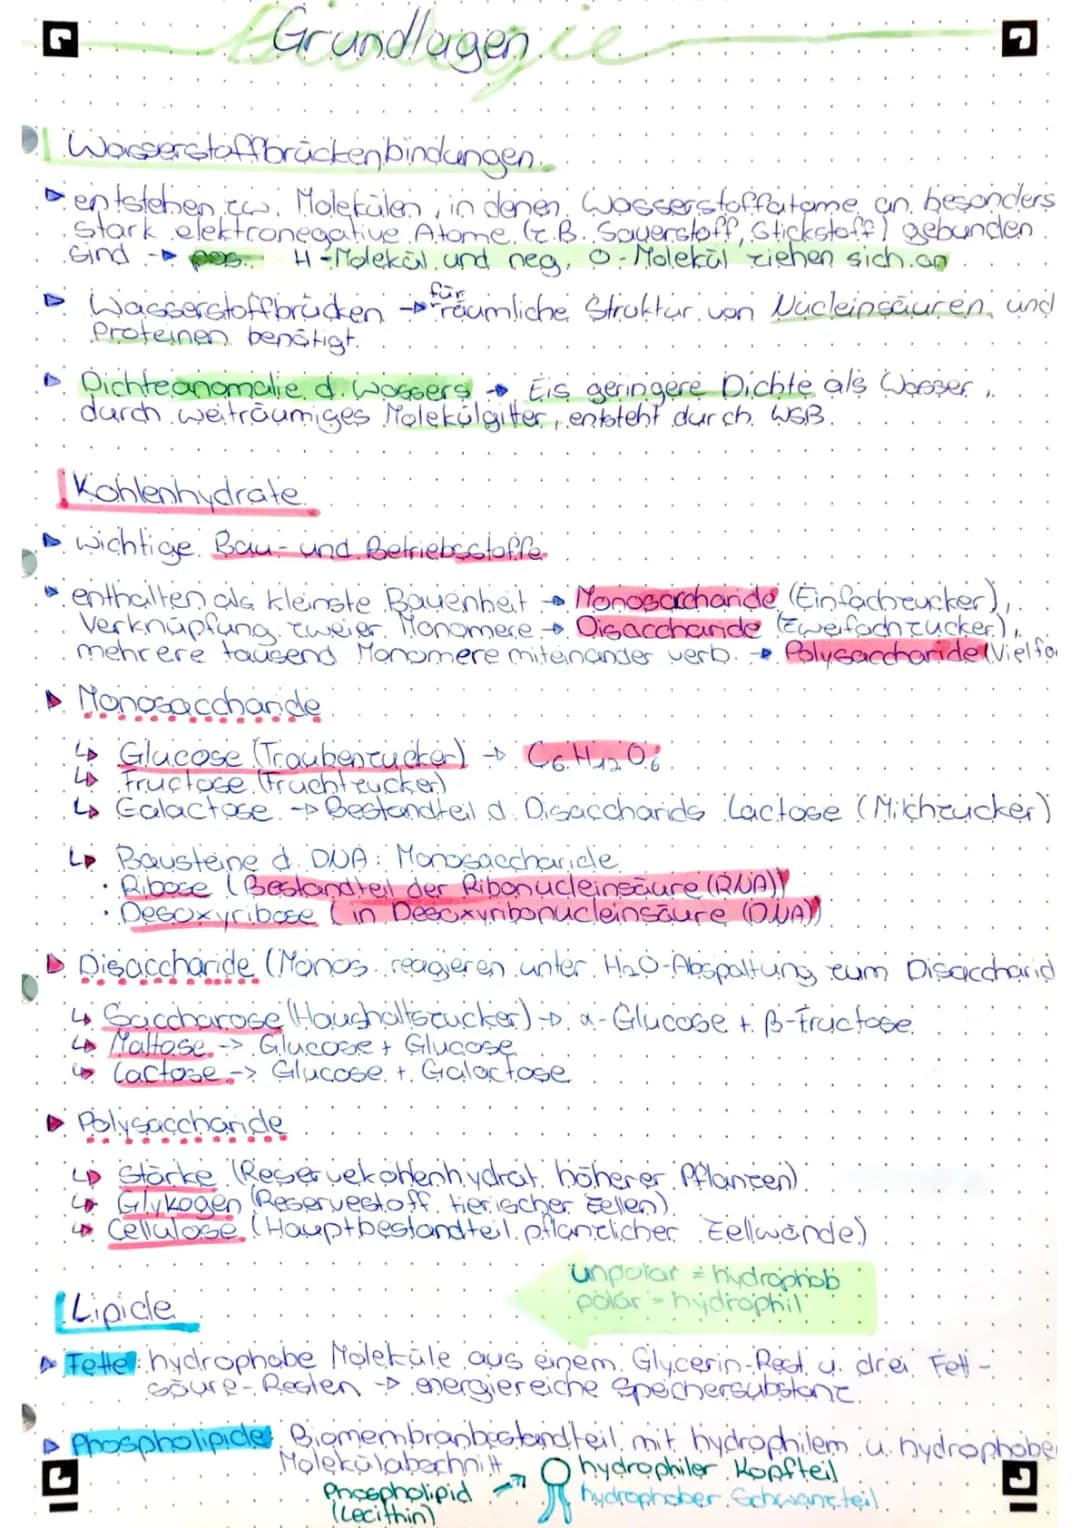 Biologie
Grundlagen
Wasserstoffbrückenbindungen
entstehen zw. Molekülen, in denen Wasserstoffatome an besonders
stark elektronegative Atome (z.B. Sauerstoff, Stickstoff) gebunden
sind → pos. H-Molekül und neg. O-Molekül ziehen sich an
für
Wasserstoffbrücken → räumliche Struktur von Nucleinsäuren und
Proteinen benötigt.
Dichteanomalie d. Wassers → Eis geringere Dichte als Wasser
durch weiträumiges Molekülgitter, entsteht durch WSB.
Kohlenhydrate
wichtige Bau- und Betriebsstoffe
enthalten als kleinste Baueinheit → Monosaccharide (Einfachzucker),
Verknüpfung zweier Monomere → Disaccharide (Zweifachzucker),
mehrere tausend Monomere miteinander verb. → Polysaccharide (Vielfa
Monosaccharide
↳ Glucose (Traubenzucker) → C6H12O6
↳ Fructose (Fruchtzucker)
↳ Galactose → Bestandteil d. Disaccharids Lactose (Milchzucker)
↳ Bausteine d. DNA: Monosaccharide
· Ribose (Bestandteil der Ribonucleinsäure (RNA))
· Desoxyribose (in Desoxyribonucleinsäure (DNA))
Disaccharide (Monos. reagieren unter H2O-Abspaltung zum Disaccharid
↳ Saccharose (Haushaltszucker) → α-Glucose + β-Fructose
↳ Maltose -> Glucose + Glucose
↳ Lactose -> Glucose + Galactose
Polysaccharide
↳ Stärke (Reservekohlenhydrat höherer Pflanzen)
↳ Glykogen (Reservestoff tierischer Zellen)
↳ Cellulose (Hauptbestandteil pflanzlicher Zellwände)
unpolar = hydrophob
polar = hydrophil
Lipide
Fette: hydrophobe Moleküle aus einem Glycerin-Rest u. drei Fett-
säure-Resten → energiereiche Speichersubstanz
Phospholipide: Biomembranbestandteil mit hydrophilem u. hydrophobe
Molekülabschnitt
hydrophiler Kopfteil
Phospholipid
hydrophober Schwanzteil
(Lecithin)